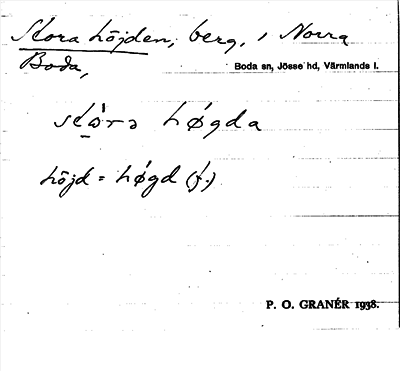 Stora höjden, berg, i Norra
Boda,
Boda sn, Jösse hd, Värmlands l.
stω̄́rə hǿgda
höjd = hǿgd (f.)
P. O. GRANÉR 1938.